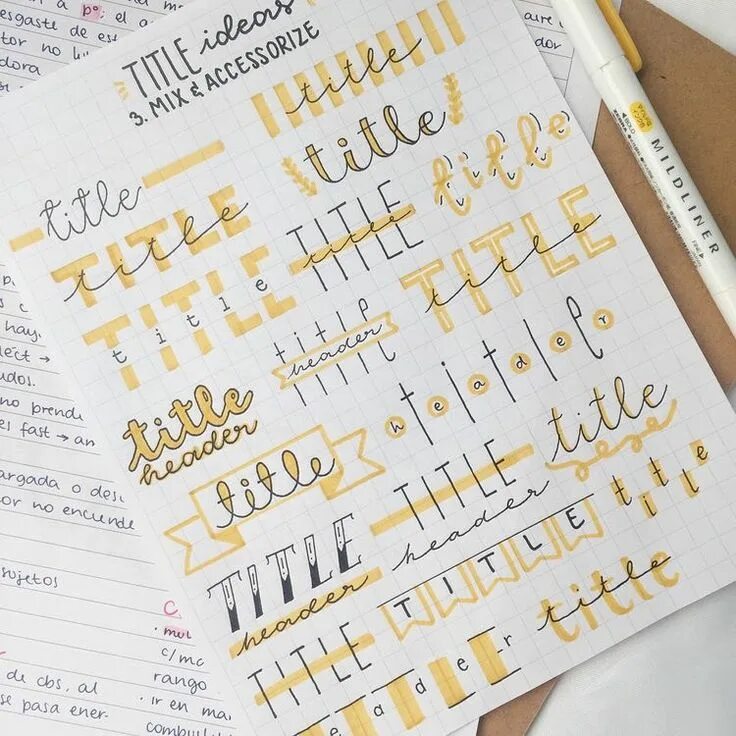 TITLE ideas
3. MIX & ACCESSORIZE
title
title
title
title
title
TITLE
title
TITLE
title
title
TITLE
TITLE
title
title
header
header
title
title
header
title
title
TITLE
header
title
TITLE
header
TITLE
title
TITLE
header
title
a po; el a
sgaste de est
tor no lu
dora
aire
dor
hay
lect →
udos.
no prende
es fast → an
argada o des
or no enciende
sujetos
de cbs, al
se pasa ener-
C
mul
c/mc
rango
ir en ma
combustib
MILDLINER
FINE
BOLD